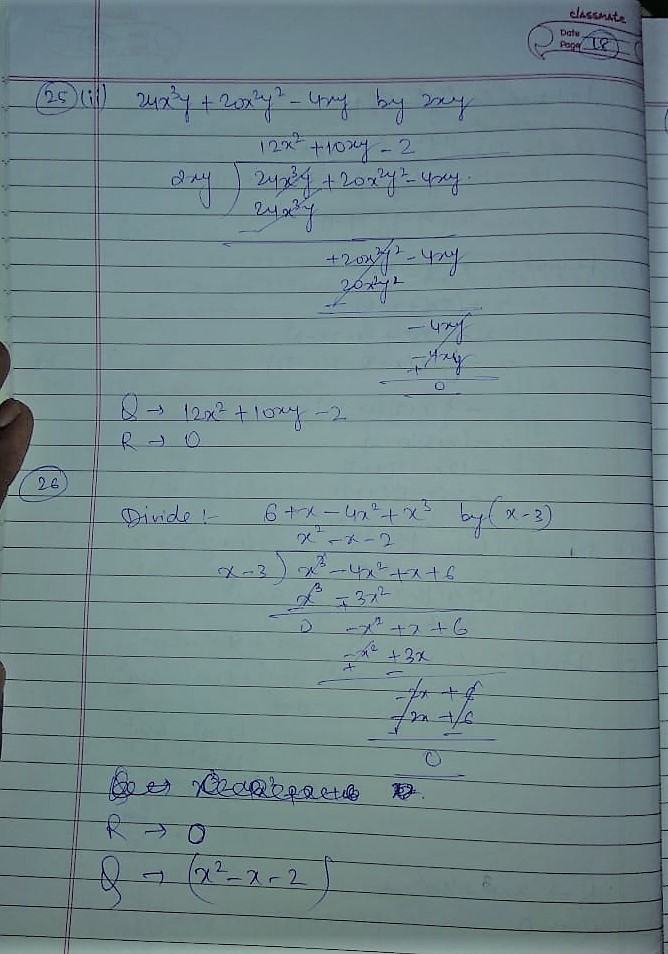 classmate
Date
Page 18
25 (ii) 24x³y + 20x²y² - 4xy by 2xy
12x² + 10xy - 2
2xy ) 24x³y + 20x²y² - 4xy.
24x³y
-
+20x²y² - 4xy
20x²y²
-
- 4xy
- 4xy
+
0
Q → 12x² + 10xy - 2
R → 0
26
Divide :- 6 + x - 4x² + x³ by (x-3)
x² - x - 2
x-3 ) x³ - 4x² + x + 6
x³ - 3x²
- +
0 -x² + x + 6
-x² + 3x
+ -
-2x + 6
-2x + 6
+ -
0
R → 0
Q → (x² - x - 2)